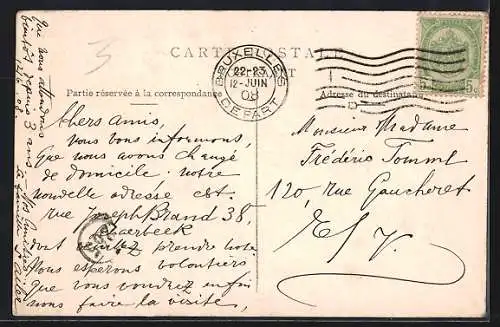 3
CARTE POSTALE
BRUXELLES
22-23
12-JUIN
09
DEPART
Partie réservée à la correspondance
Adresse du destinataire
Chers amis,
Vous vous informons,
Que nous avons changé
de domicile; notre
nouvelle adresse est.
rue Joseph Brand 38,
Schaerbeek
dont veuillez prendre note.
Nous espérons volontiers
que vous voudrez enfin
nous faire la visite,
Que nous attendons
bientôt depuis 3 ans
12/6 08.
La famille
Monsieur Madame
Frédéric
120, rue Gaucheret
E/V.
5c